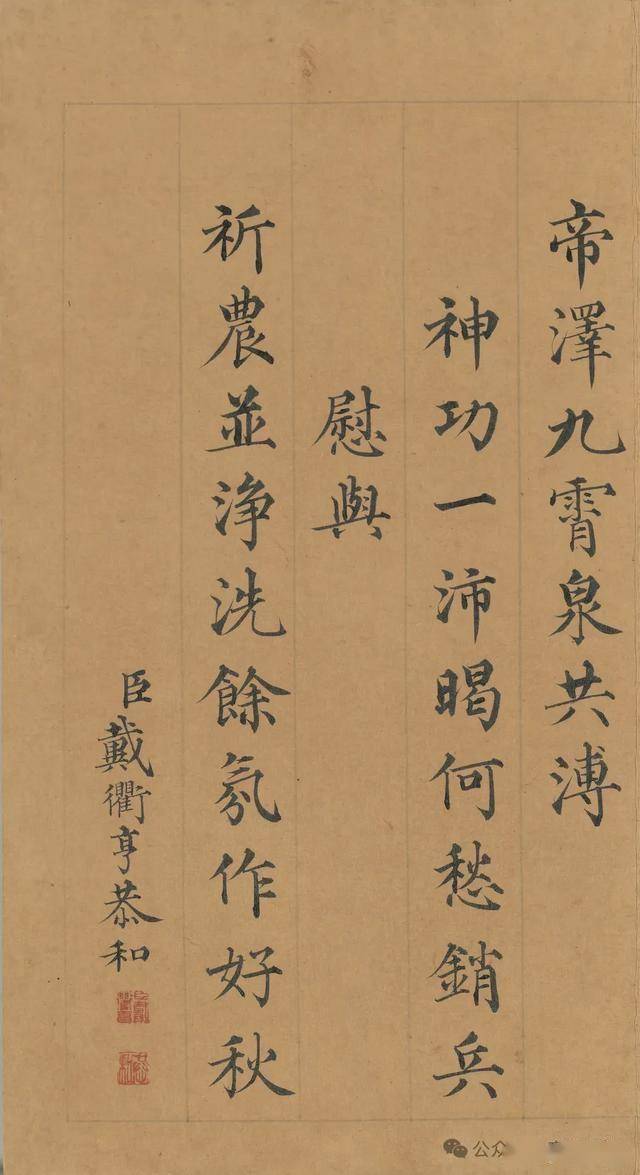 帝澤九霄泉共溥
神功一沛暍何愁銷兵
慰與
祈農並浄洗餘氛作好秋
臣戴衢亨恭和
公众